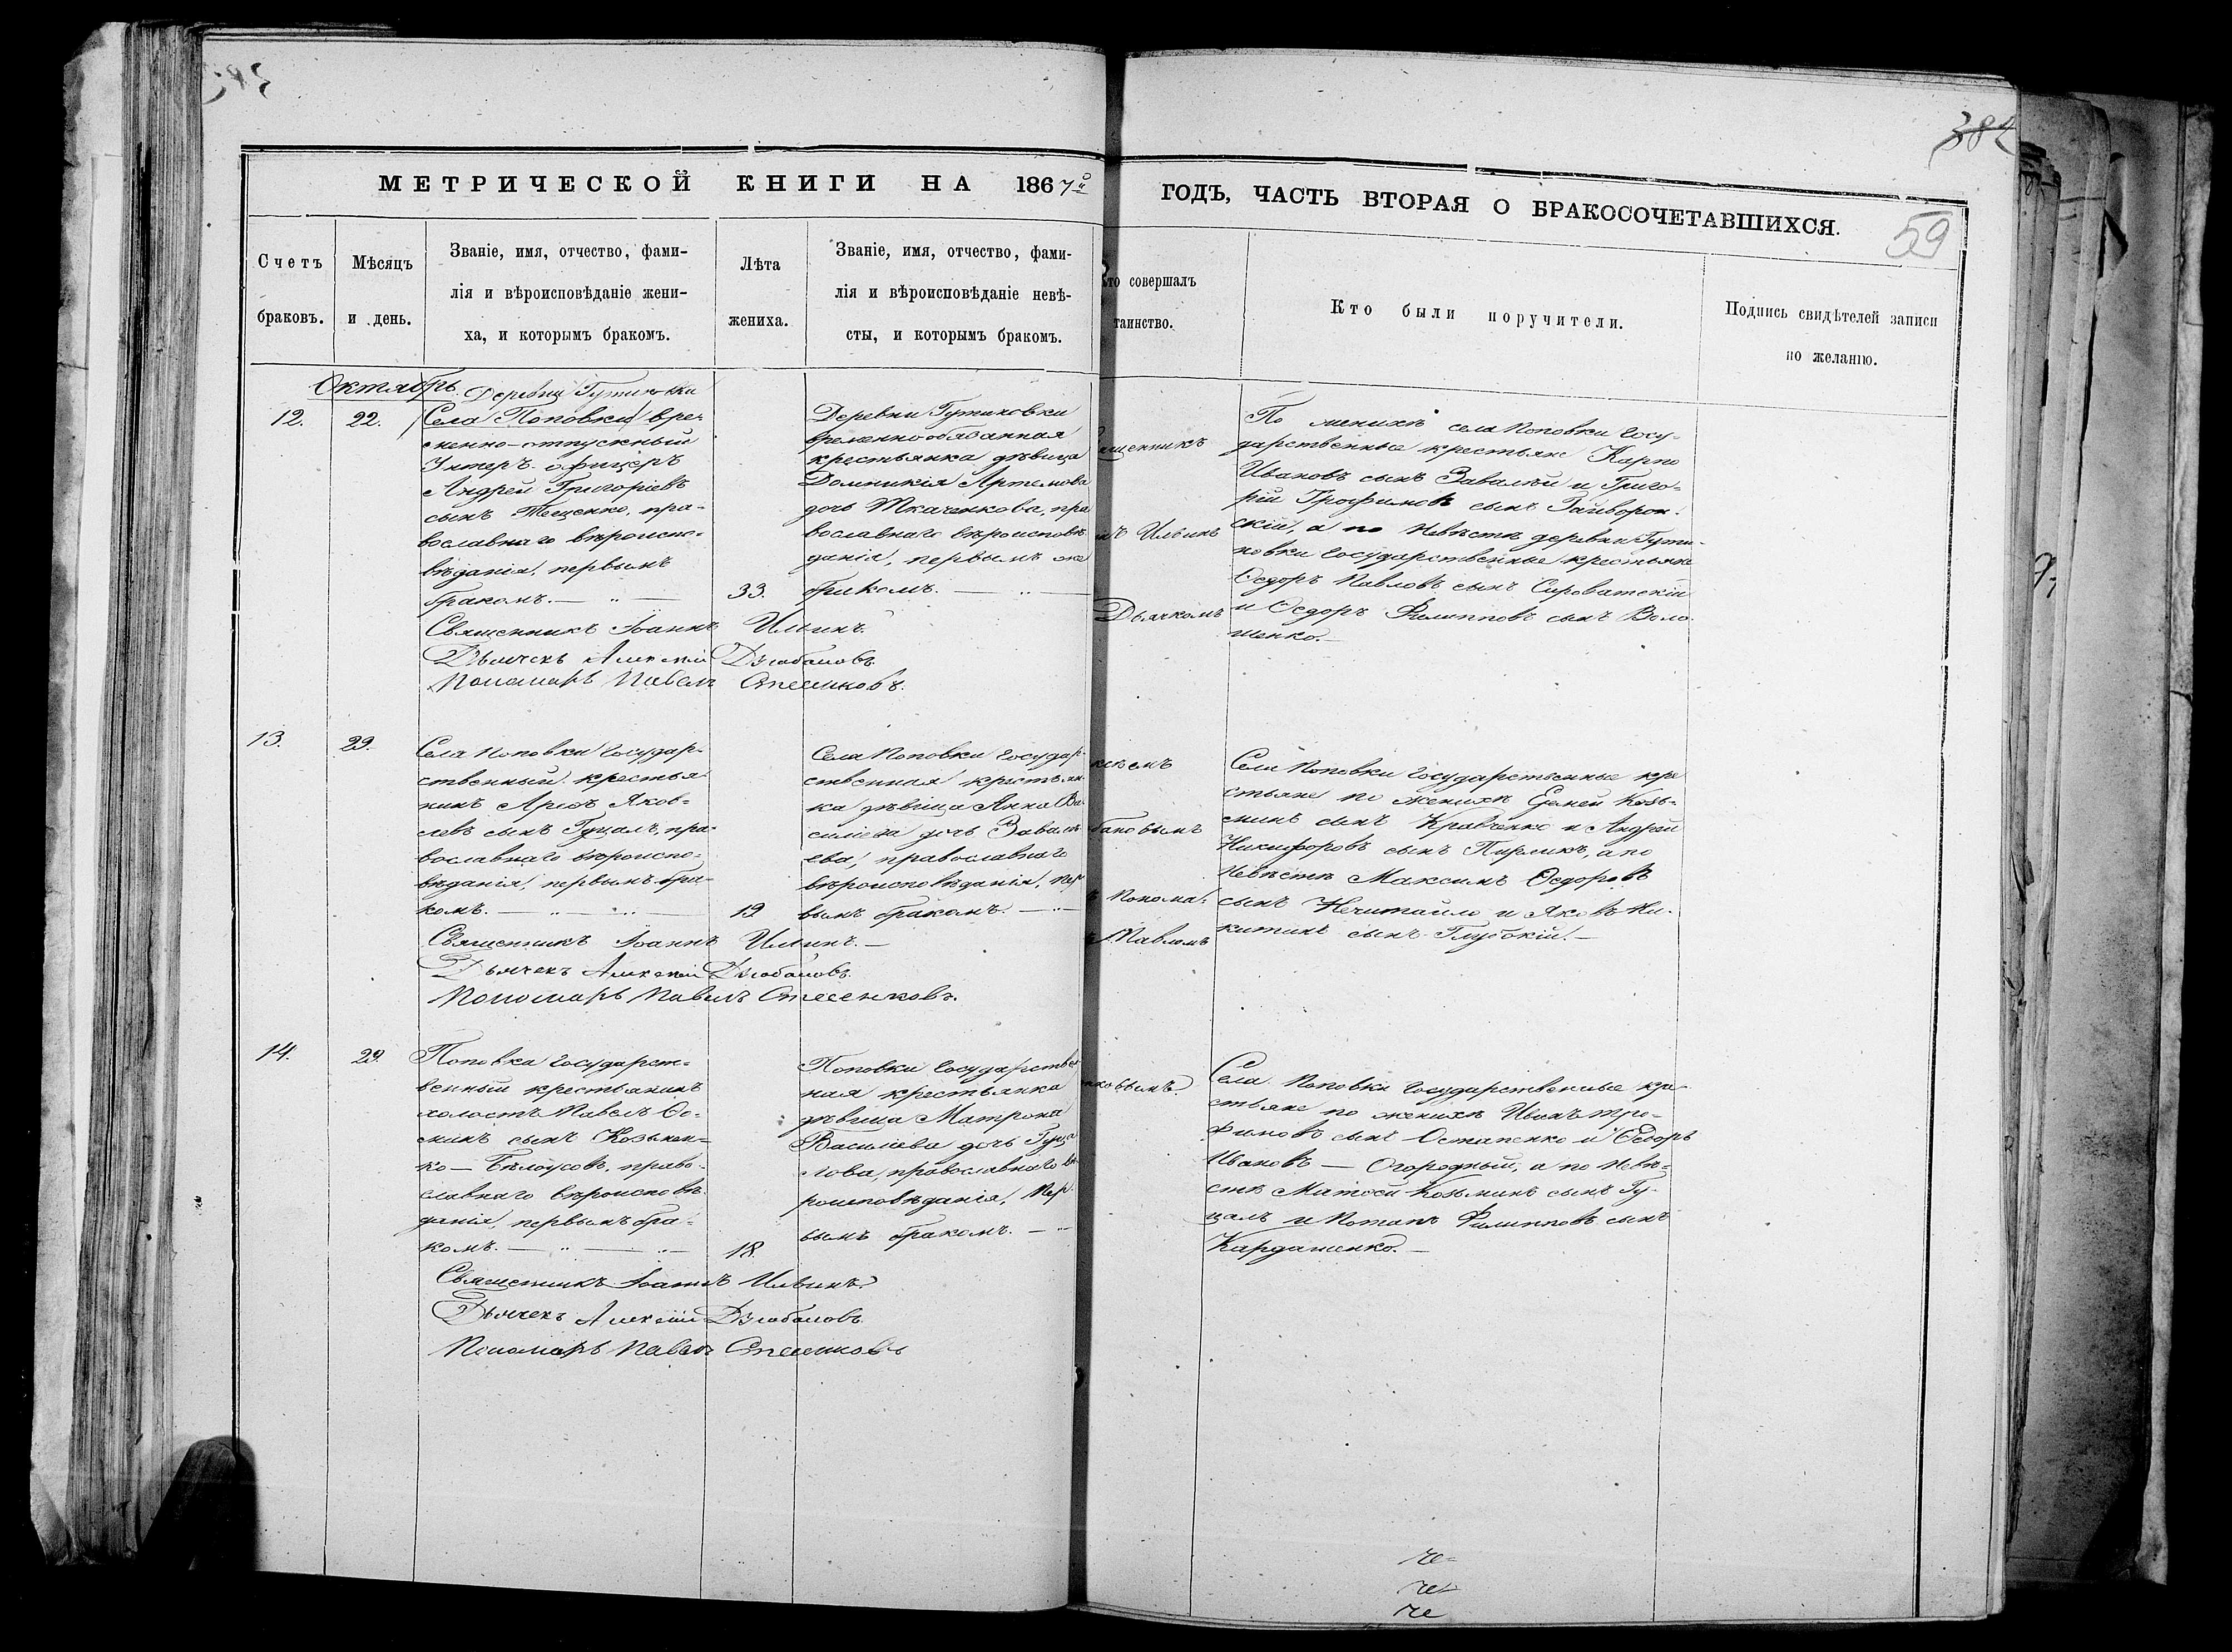 384
59
МЕТРИЧЕСКОЙ КНИГИ НА 1867й
ГОДЪ, ЧАСТЬ ВТОРАЯ О БРАКОСОЧЕТАВШИХСЯ.
Счетъ
браковъ.
Мѣсяцъ
и день.
Званіе, имя, отчество, фами-
лія и вѣроисповѣданіе жени-
ха, и которымъ бракомъ.
Лѣта
жениха.
Званіе, имя, отчество, фами-
лія и вѣроисповѣданіе невѣ-
сты, и которымъ бракомъ.
Кто совершалъ
таинство.
Кто были поручители.
Подпись свидѣтелей записи
по желанію.
Октябрь.
12.
22.
Деревни Гутиновки
Села Поповки вре-
менно-отпускный
Унтеръ-офицеръ
Андрей Григоріевъ
сынъ Тещенко, пра-
вославнаго вѣроиспо-
вѣданія, первымъ
бракомъ.
33.
Деревни Гутиновки
временнообязанная
крестьянка дѣвица
Домникія Артемова
дочь Ткаченкова, пра
вославнаго вѣроисповѣ
данія, первымъ же
бракомъ.
щенникъ
нъ Ильинъ
Дьячкомъ
По женихѣ села Поповки Госу-
дарственные крестьяне Карпо
Ивановъ сынъ Завалѣй и Григо-
рій Трофимовъ сынъ Гайворон-
скій, а по невѣстѣ деревни Гути-
новки Государственные крестьяне
Ѳедоръ Павловъ сынъ Сыроватскій
и Ѳедоръ Филипповъ сынъ Воло-
шенко.
Священникъ Іоаннъ Ильинъ.
Дьячекъ Алексій Дзюбановъ
Пономарь Павелъ Стесенковъ.
13.
29.
Села Поповки Государ-
ственный крестья-
нинъ Яков-
левъ сынъ Гуцалъ, пра-
вославнаго вѣроиспо-
вѣданія, первымъ бра-
комъ.
19.
Села Поповки Государ-
ственная крестьян-
ка дѣвица Анна Ва-
силіева дочь Завалѣ-
ева, православнаго
вѣроисповѣданія, пер-
вымъ бракомъ.
ксѣемъ
бановымъ
Понома-
Павломъ
Села Поповки Государственные кре-
стьяне по женихѣ Козь-
минъ сынъ Кравченко и Андрей
Никифоровъ сынъ Пирликъ, а по
невѣстѣ Максимъ Ѳедоровъ
сынъ Нечитайло и Яковъ Ни-
китинъ сынъ Глубокій.
Священникъ Іоаннъ Ильинъ.
Дьячекъ Алексій Дзюбановъ.
Пономарь Павелъ Стесенковъ.
14.
29.
Поповки Государст-
венный крестьянинъ
холостъ Павелъ Ѳо-
минъ сынъ Козьмен-
ко — Бѣлоусовъ, право-
славнаго вѣроисповѣ-
данія, первымъ бра-
комъ.
18.
Поповки Государствен
ная крестьянка
дѣвица Матрона
Василіева дочь Гуца
лова, православнаго вѣ-
роисповѣданія, пер-
вымъ бракомъ.
нковымъ.
Села Поповки Государственные кре-
стьяне по женихѣ Иванъ Тро-
фимовъ сынъ Остапенко и Ѳедоръ
Ивановъ — Огородный, а по невѣ-
стѣ Матѳей Козьминъ сынъ Гу-
цалъ и Потапъ Филипповъ сынъ
Кардашенко.
Священникъ Іоаннъ Ильинъ.
Дьячекъ Алексій Дзюбановъ
Пономарь Павелъ Стесенковъ